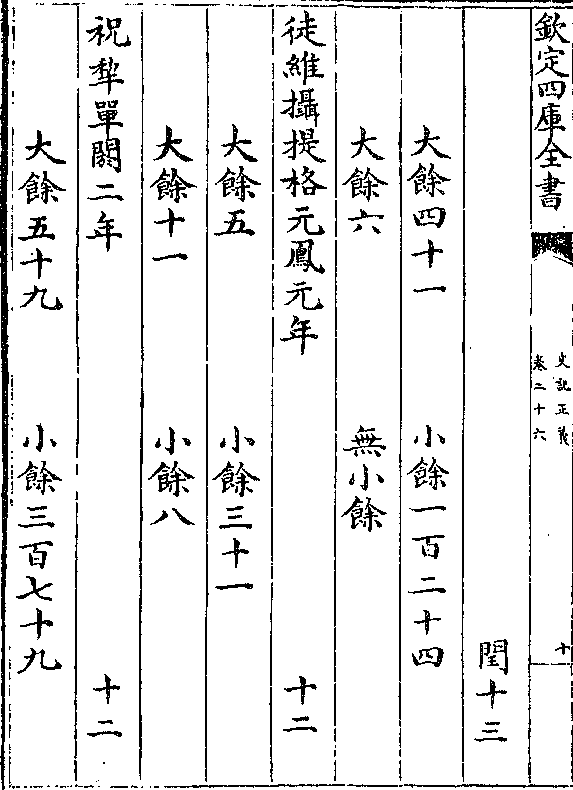 欽定四庫全書
史記正義
卷二十六
十
閏十三
大餘四十一 小餘一百二十四
大餘六 無小餘
徒維攝提格元鳳元年 十二
大餘五 小餘三十一
大餘十一 小餘八
祝犂單閼二年 十二
大餘五十九 小餘三百七十九